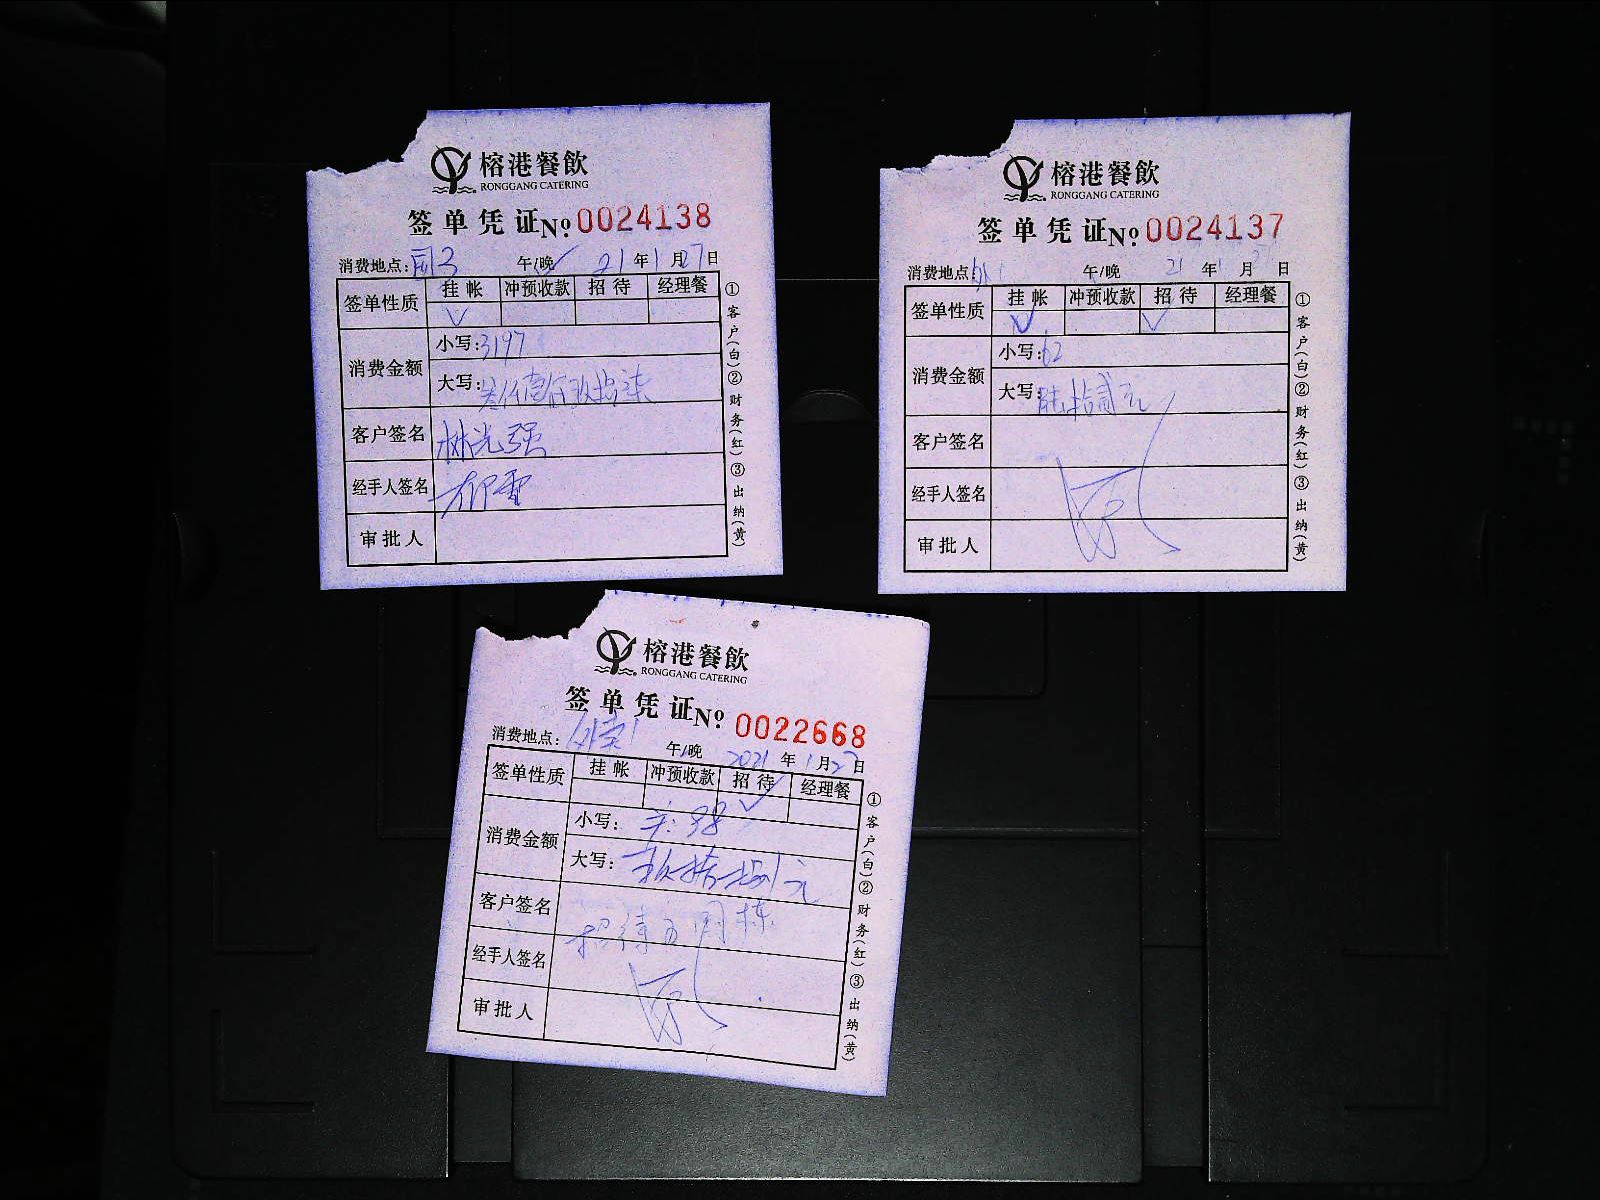 榕港餐飲
RONGGANG CATERING
签单凭证 No 0024138
消费地点: 午/晚 21年1月27日
签单性质 挂帐 冲预收款 招待 经理餐
✓
消费金额 小写:3197
大写:叁仟壹佰玖拾柒
客户签名 林光强
经手人签名
审批人
①客户(白)②财务(红)③出纳(黄)
榕港餐飲
RONGGANG CATERING
签单凭证 No 0024137
消费地点: 午/晚 21年1月27日
签单性质 挂帐 冲预收款 招待 经理餐
✓ ✓
消费金额 小写:62
大写:陆拾贰元
客户签名
经手人签名
审批人
①客户(白)②财务(红)③出纳(黄)
榕港餐飲
RONGGANG CATERING
签单凭证 No 0022668
消费地点:外卖1 午/晚 2021年1月27日
签单性质 挂帐 冲预收款 招待 经理餐
✓
消费金额 小写: 98
大写:玖拾捌元
客户签名 招待
经手人签名
审批人
①客户(白)②财务(红)③出纳(黄)